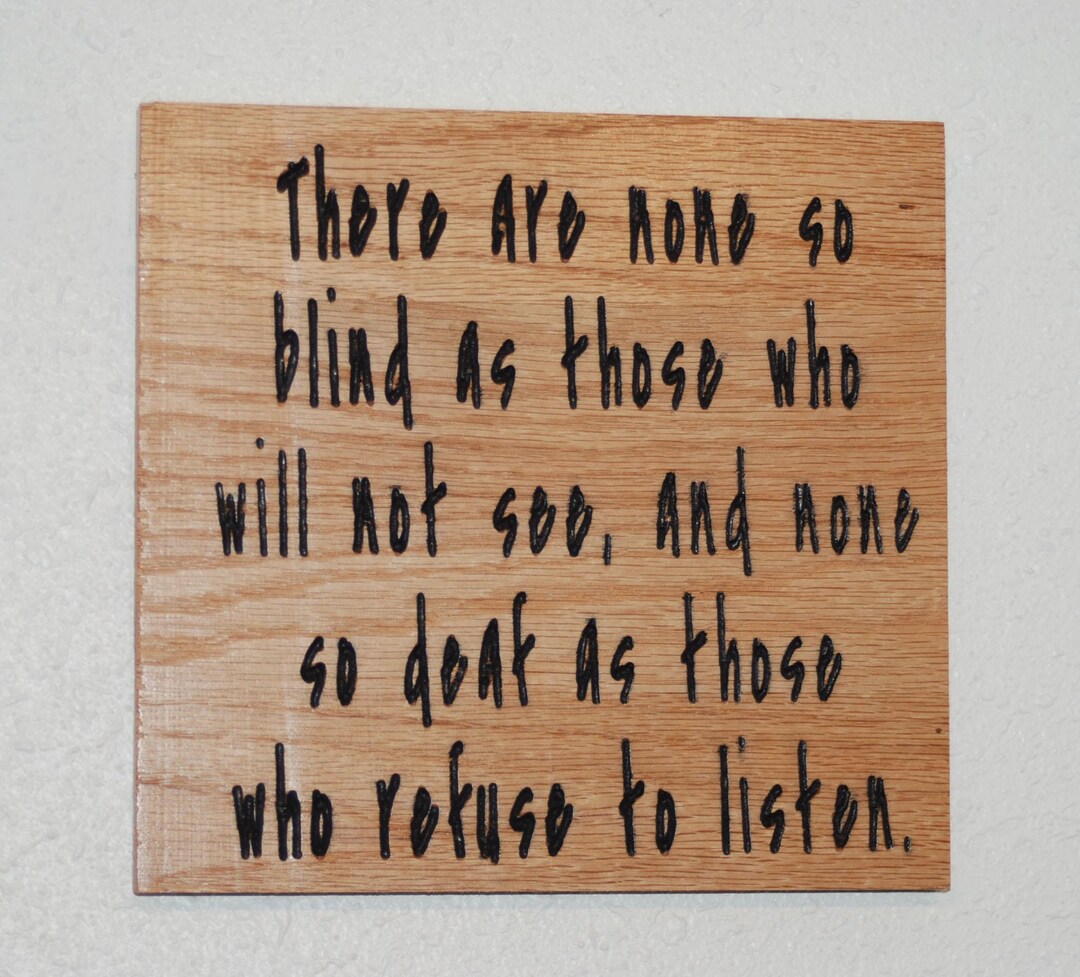 There are none so
blind as those who
will not see, and none
so deaf as those
who refuse to listen.